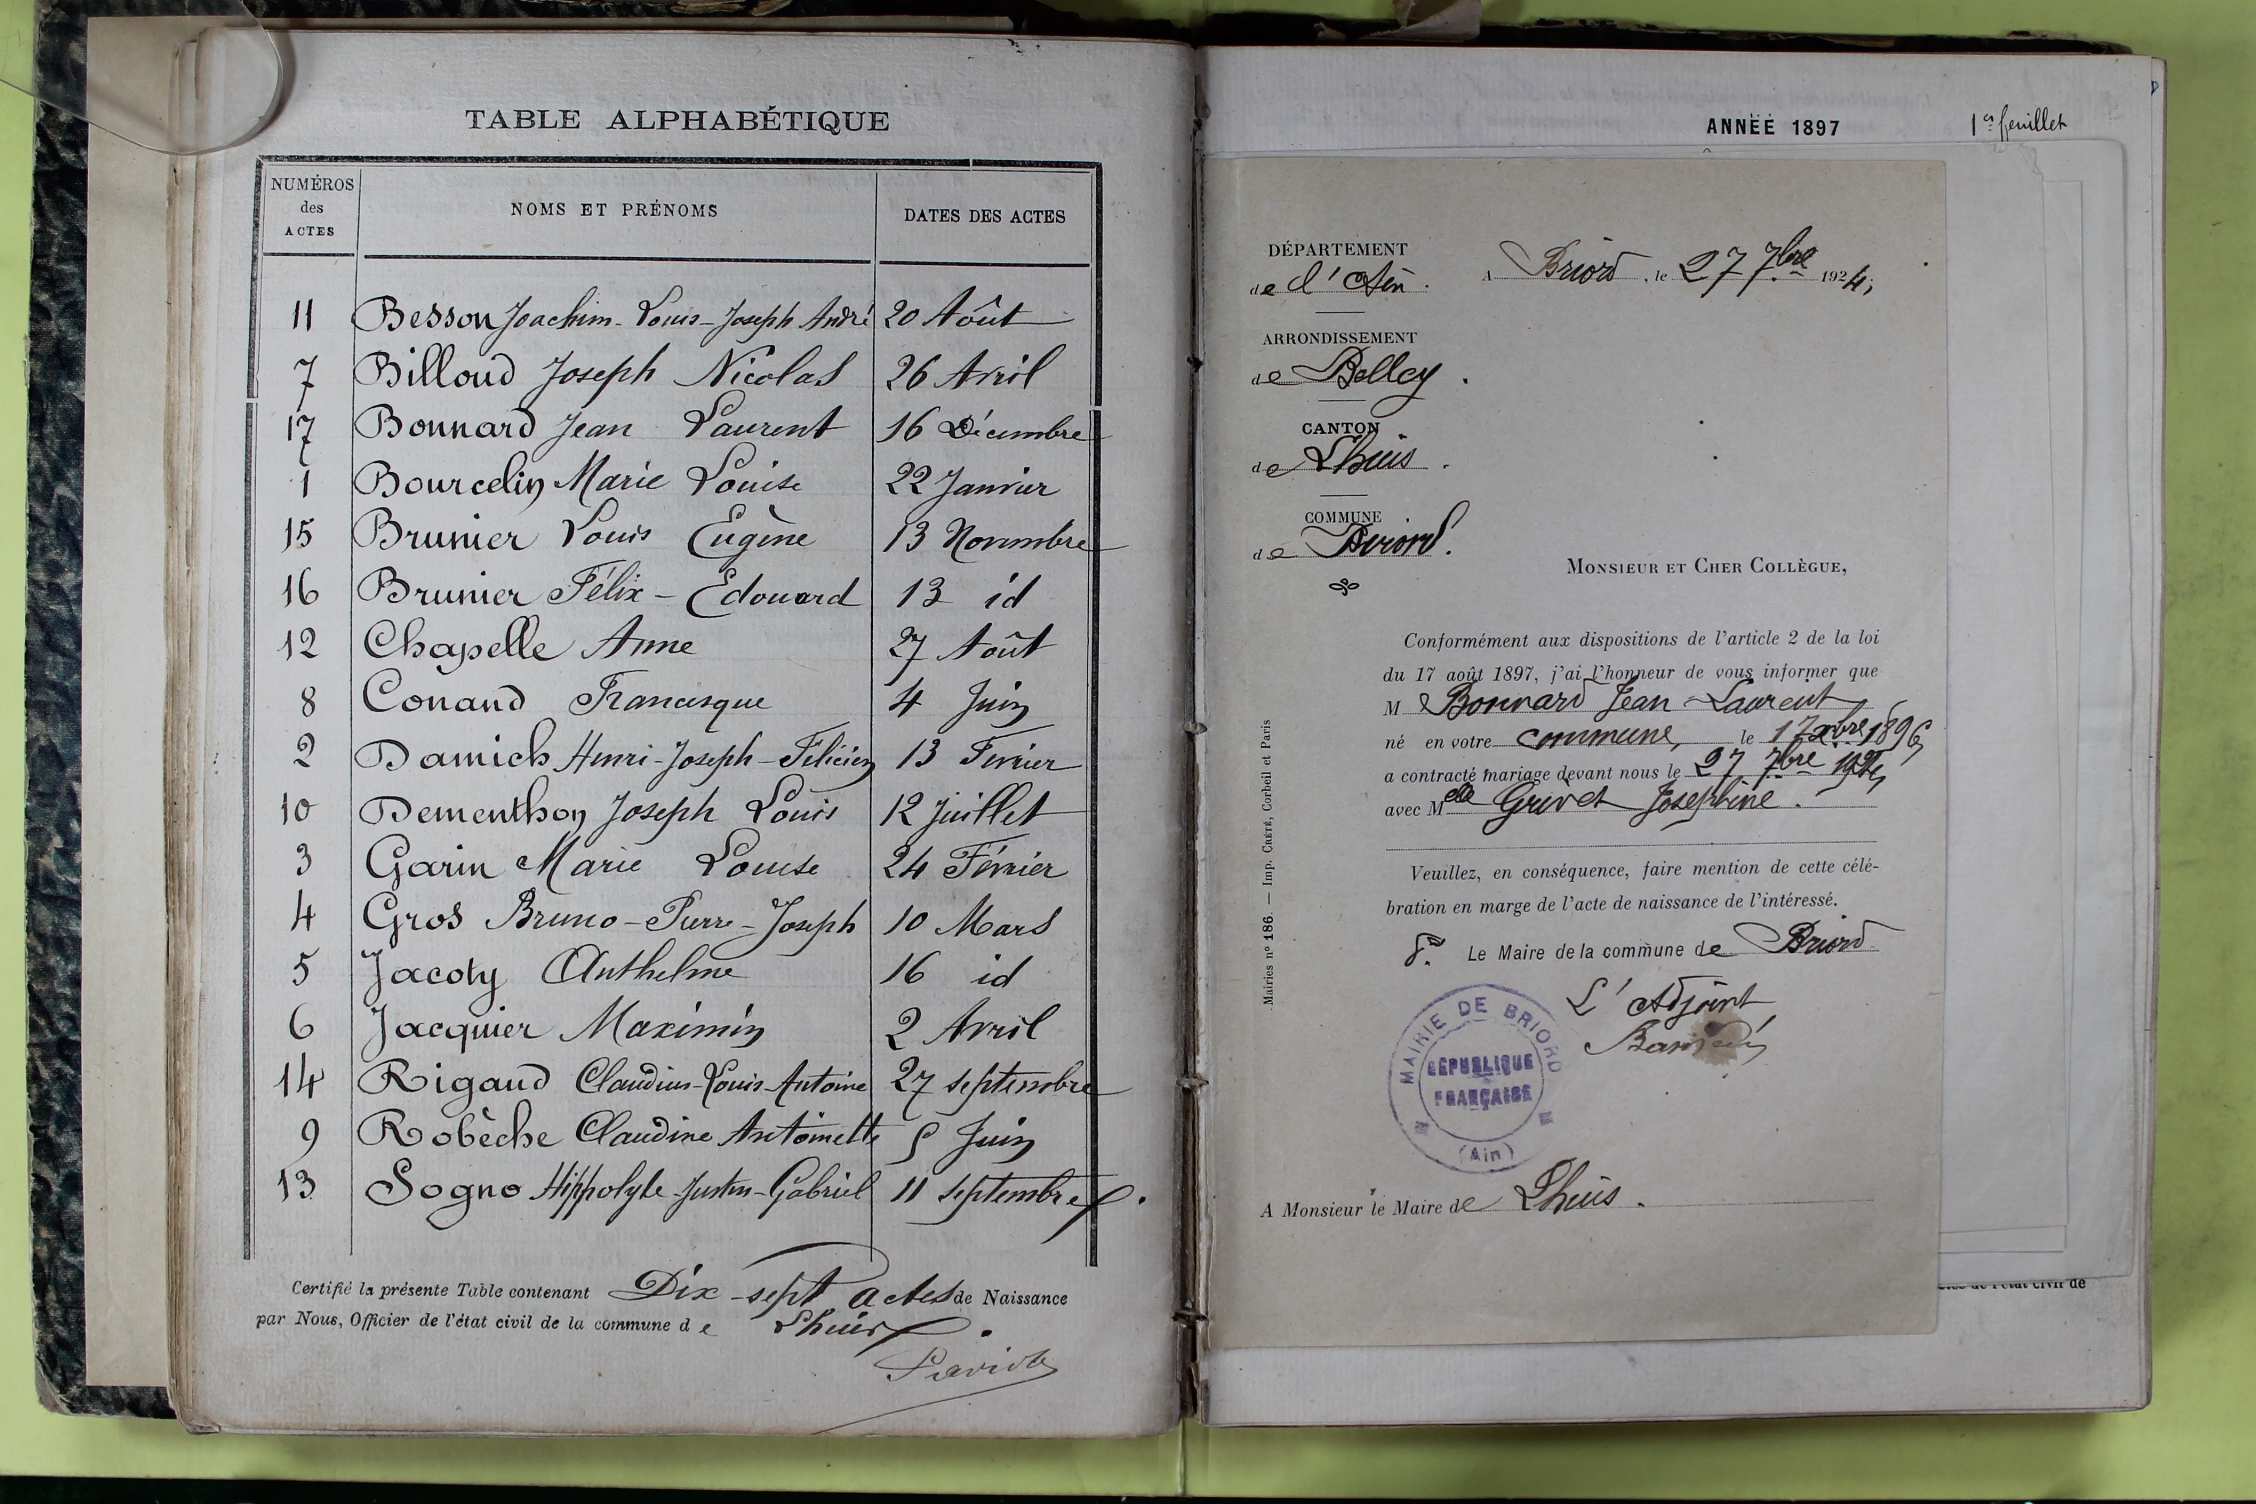 TABLE ALPHABÉTIQUE
NUMÉROS des ACTES NOMS ET PRÉNOMS DATES DES ACTES
11 Besson Joachim-Louis-Joseph André 20 Août
7 Billoud Joseph Nicolas 26 Avril
17 Bonnard Jean Laurent 16 Décembre
1 Bourcelin Marie Louise 22 Janvier
15 Brunier Louis Eugène 13 Novembre
16 Brunier Félix-Edouard 13 id
12 Chapelle Anne 27 Août
8 Conand Francisque 4 Juin
2 Damich Henri-Joseph-Félicien 13 Février
10 Dementhon Joseph Louis 12 Juillet
3 Garin Marie Louise 24 Février
4 Gros Bruno-Pierre-Joseph 10 Mars
5 Jacoty Anthelme 16 id
6 Jacquier Maximin 2 Avril
14 Rigaud Claudius-Louis-Antoine 27 septembre
9 Robèche Claudine Antoinette 5 Juin
13 Sogno Hippolyte-Justin-Gabriel 11 septembre
Certifié la présente Table contenant Dix-sept actes de Naissance
par Nous, Officier de l'état civil de la commune de Lhuis
ANNÉE 1897
1er feuillet
DÉPARTEMENT
de l'Ain.
A Briord, le 27 7bre 1924;
ARRONDISSEMENT
de Belley.
CANTON
de Lhuis.
COMMUNE
de Briord.
MONSIEUR ET CHER COLLÈGUE,
Conformément aux dispositions de l'article 2 de la loi
du 17 août 1897, j'ai l'honneur de vous informer que
M Bonnard Jean Laurent
né en votre commune, le 17 xbre 1896,
a contracté mariage devant nous le 27 7bre 1924,
avec Melle Grivet Joséphine.
Veuillez, en conséquence, faire mention de cette célé-
bration en marge de l'acte de naissance de l'intéressé.
Le Maire de la commune de Briord
L'Adjoint
MAIRIE DE BRIORD
RÉPUBLIQUE
FRANÇAISE
(Ain)
A Monsieur le Maire de Lhuis.
Mairies nº 186. — Imp. CRÉTÉ, Corbeil et Paris
de l'état civil de